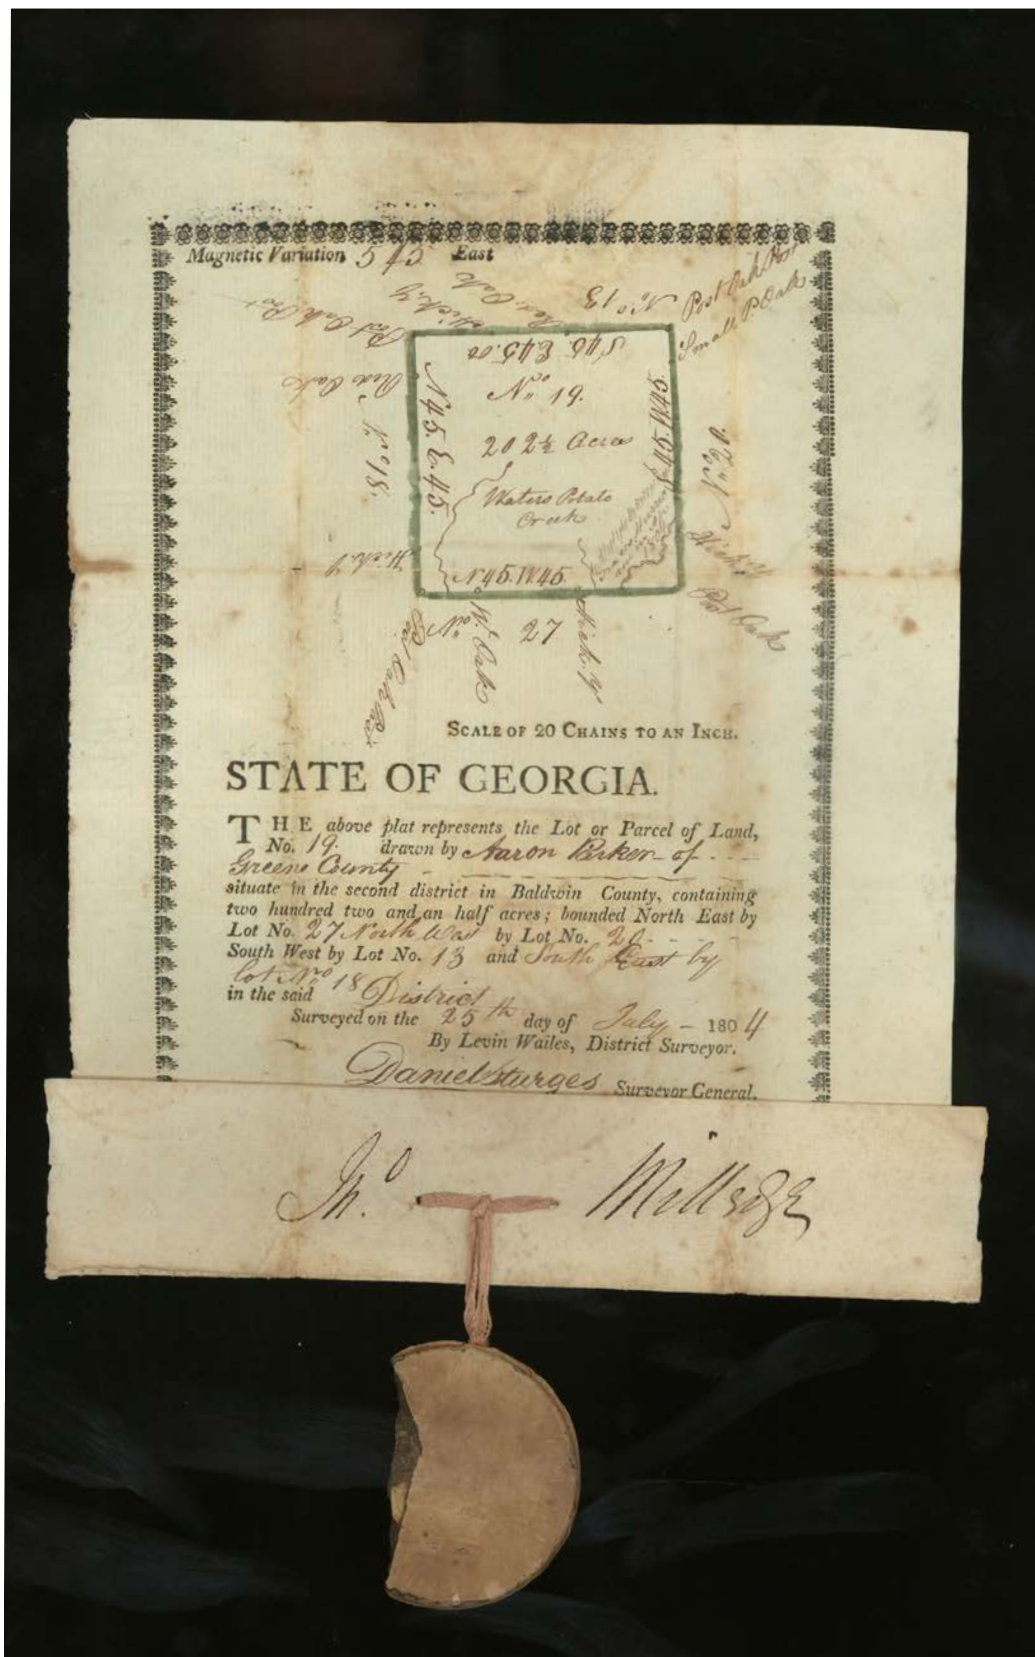 Magnetic Variation 5 45 East
Post Oak Post
Hick.y
Red Oak
No 13
Post Oak Post
Small P. Oak
S 45. E 45.00
Red Oak
No 18.
N 45. E. 45.
No 19.
202½ Acres
Waters Potato
Creek
S 45. W 45.
No 20.
Hick.y
Post Oak
Hick.y
N 45. W 45.
No 27
Post Oak Post
W. Oak
Hick.y
SCALE OF 20 CHAINS TO AN INCH.
STATE OF GEORGIA.
THE above plat represents the Lot or Parcel of Land,
No. 19. drawn by Aaron Parker of
Greene County
situate in the second district in Baldwin County, containing
two hundred two and an half acres; bounded North East by
Lot No. 27 North West by Lot No. 20
South West by Lot No. 13 and South East by
lot Nro 18
in the said District
Surveyed on the 25th day of July 1804
By Levin Wailes, District Surveyor.
Daniel Sturges Surveyor General.
Jno Milledge